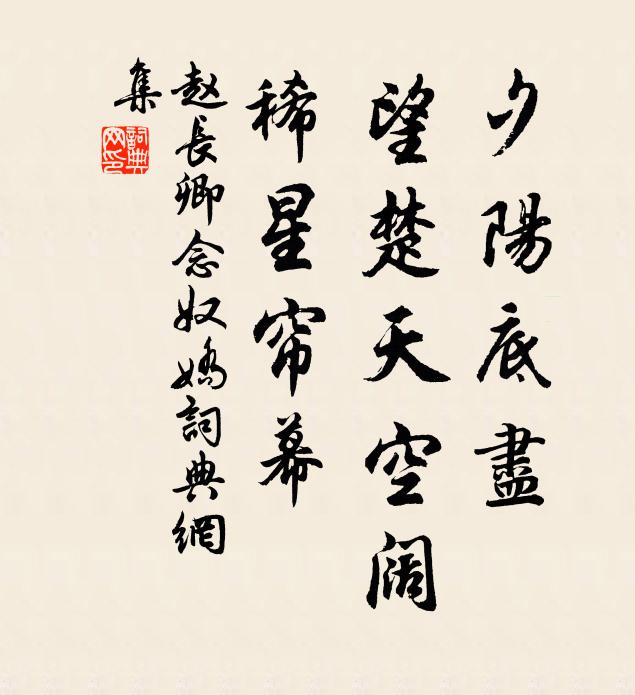 夕陽底盡
望楚天空闊
稀星帘幕
赵長卿念奴嬌詞典網
集
詞典
网印